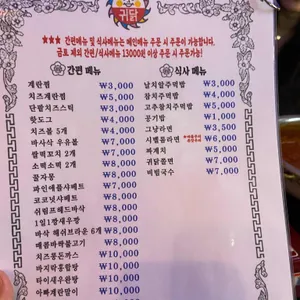 귀닭
★★★ 간편메뉴 및 식사메뉴는 메인메뉴 주문 시 주문이 가능합니다.
금로 제외 간편/식사메뉴 13000원 이상 주문 가능합니다!
간편 메뉴
계란찜 ₩3,000
치즈계란찜 ₩5,000
단팥치즈스틱 ₩3,000
핫도그 ₩4,000
치즈볼 5개 ₩4,000
바사삭 우유볼 ₩7,000
쌀떡꼬치 2개 ₩7,000
소떡소떡 2개 ₩8,000
꿀자몽 ₩7,000
파인애플샤베트 ₩7,000
코코넛샤베트 ₩7,000
쉬림프헤드바삭 ₩8,000
1일1깡새우깡 ₩8,000
바삭 해쉬브라운 6개 ₩8,000
매콤바싹불고기 ₩8,000
치즈퐁돈까스 ₩10,000
바지락홍합탕 ₩10,000
타이새우완탕 ₩10,000
아빠계란말이 ₩10,000
식사 메뉴
날치알주먹밥 ₩3,000
참치주먹밥 ₩4,000
고추참치주먹밥 ₩5,000
공기밥 ₩1,000
그냥라면 ₩3,500
시벨롬라면 ₩6,000
짜계치 ₩5,000
귀닭쫄면 ₩7,000
비빔국수 ₩7,000